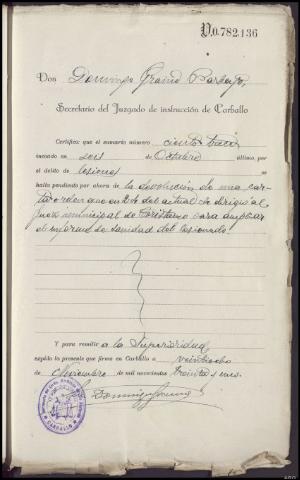 V.0.782.136
Don Domingo
Secretario del Juzgado de instrucción de Carballo
Certifico: que el sumario número ciento trece
incoado en seis de Octubre último, por
el delito de lesiones se
halla pendiente por ahora de la devolución de una car-
ta orden que en del actual se dirigió al
Juez municipal de para ampliar
el informe de sanidad del lesionado
Y para remitir a la Superioridad
expido la presente que firmo en Carballo a veintiocho
de Noviembre de mil novecientos treinta y seis.
Domingo
CARBALLO